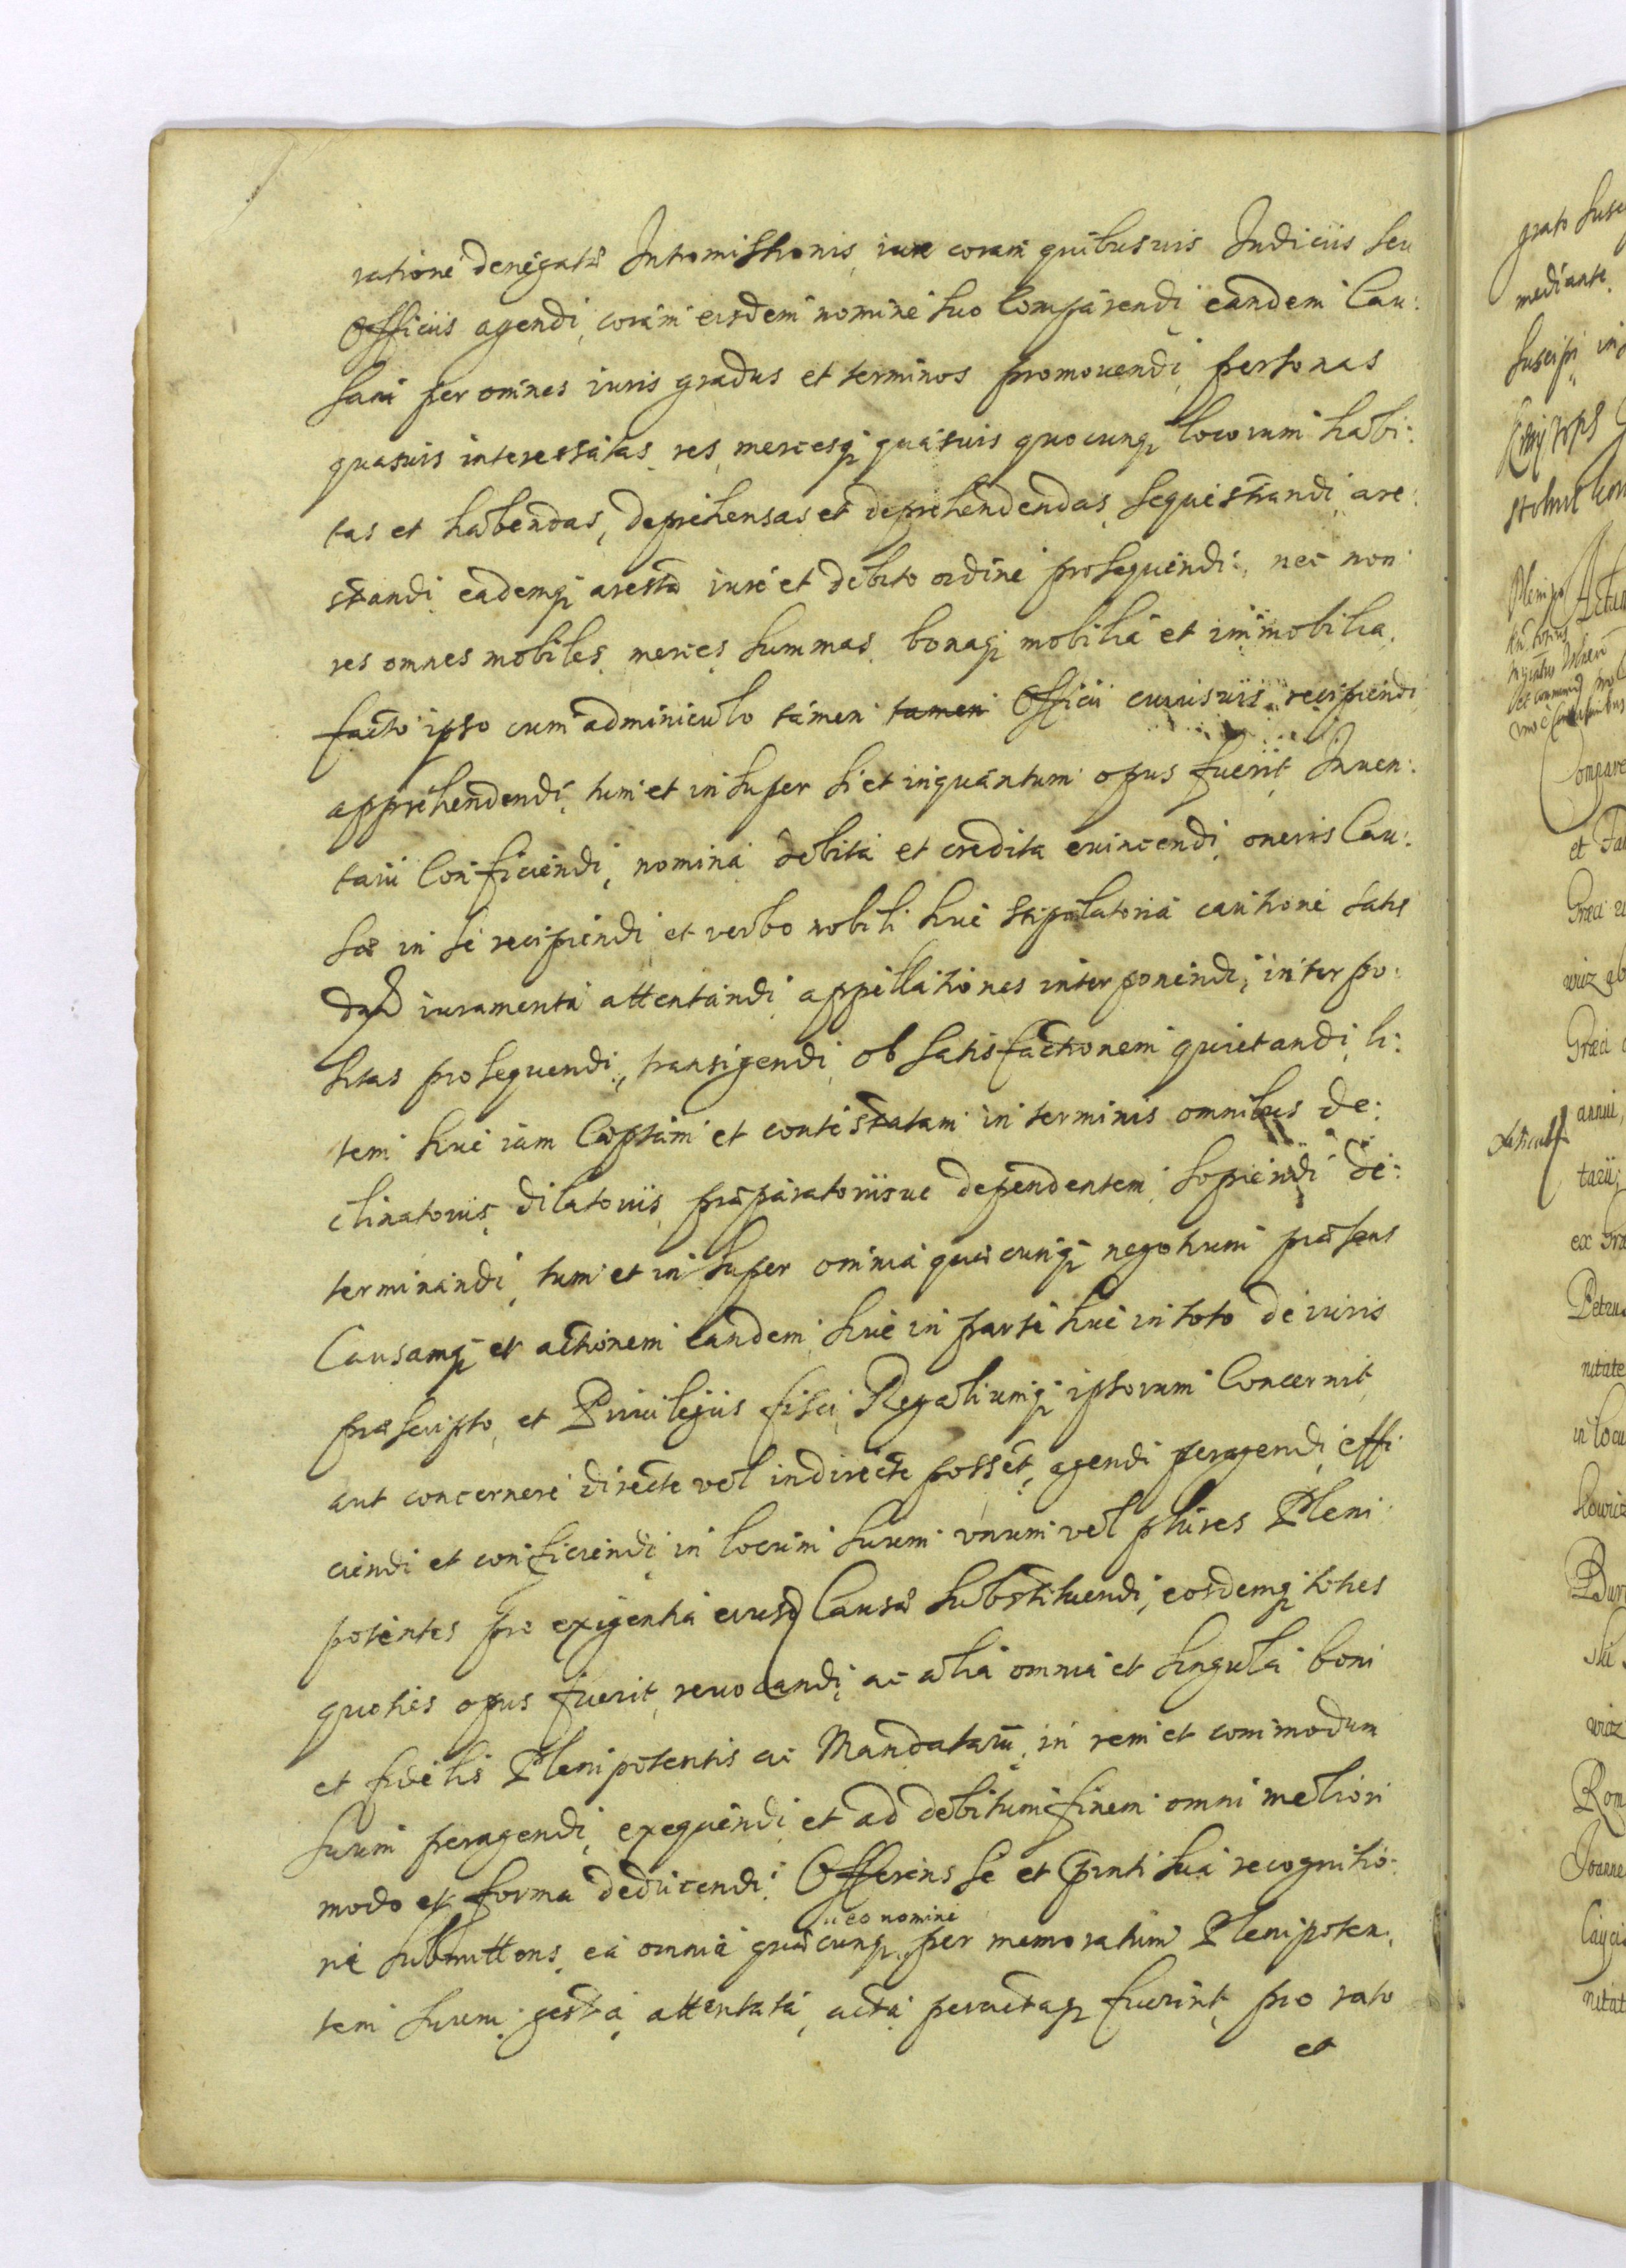 ratione denegatæ Intromissionis, iure coram quibusuis Iudiciis seu
Officiis agendi, coram eisdem nomine suo comparendi, eandem Cau:
sam per omnes iuris gradus et terminos promouendi, personas
quasuis interessatas, res, mercesq; quasuis quocunq; locorum habi:
tas et habendas, deprehensas et deprehendendas, sequestrandi, are:
standi, eademq; aresta iure et debito ordine prosequendi, nec non
res omnes mobiles, merces, summas, bonaq; mobilia et immobilia,
facto ipso cum adminiculo tamen tamen Officii cuiusuis recipiendi
apprehendendi, tum et insuper si et inquantum opus fuerit, Inuen:
tarii conficiendi, nomina debita et credita euincendi, oneris Cau:
sæ in se recipiendi et verbo nobili siue stipulatoria cautione satis
dandi iuramenta attentandi, appellationes interponendi, interpo:
sitas prosequendi, transigendi, ob satisfactionem quietandi, li:
tem siue iam cæptam et contestatam in terminis omnibus de:
clinatoriis, dilatoriis, præparatoriisue dependentem, sopiendi de:
terminandi, tum et insuper omnia quæcunq; negotium præsens
Causamq; et actionem eandem, siue in parte siue in toto de iuris
præscripto, et Priuilegiis fisci, Regaliumq; ipsorum concernit,
aut concernere directe vel indirecte posset, agendi peragendi, effi
ciendi et conficiendi, in locum suum vnum vel plures Pleni
potentes pro exigentia eiusd Causæ substituendi, eosdemq; toties
quoties opus fuerit, reuocandi, ac alia omnia et singula boni
et fidelis Plenipotentis ac Mandatarii, in rem et commodum
suum peragendi, exequendi, et ad debitum finem omni meliori
modo et forma deducendi. Offerens se et pnti sua recognitio:
ne submittens, ea omnia quæcunq; per memoratum Plenipoten:
eo nomine
tem suum, gesta, attentata, acta, peractaq; fuerint, pro rato
et
grato susc
mediante.
suscipi in
Compare
et
Græci
Græci
annui,
tarii;
ex Græ
Petru
nitate
in locu
Rom
Joanne
nitat